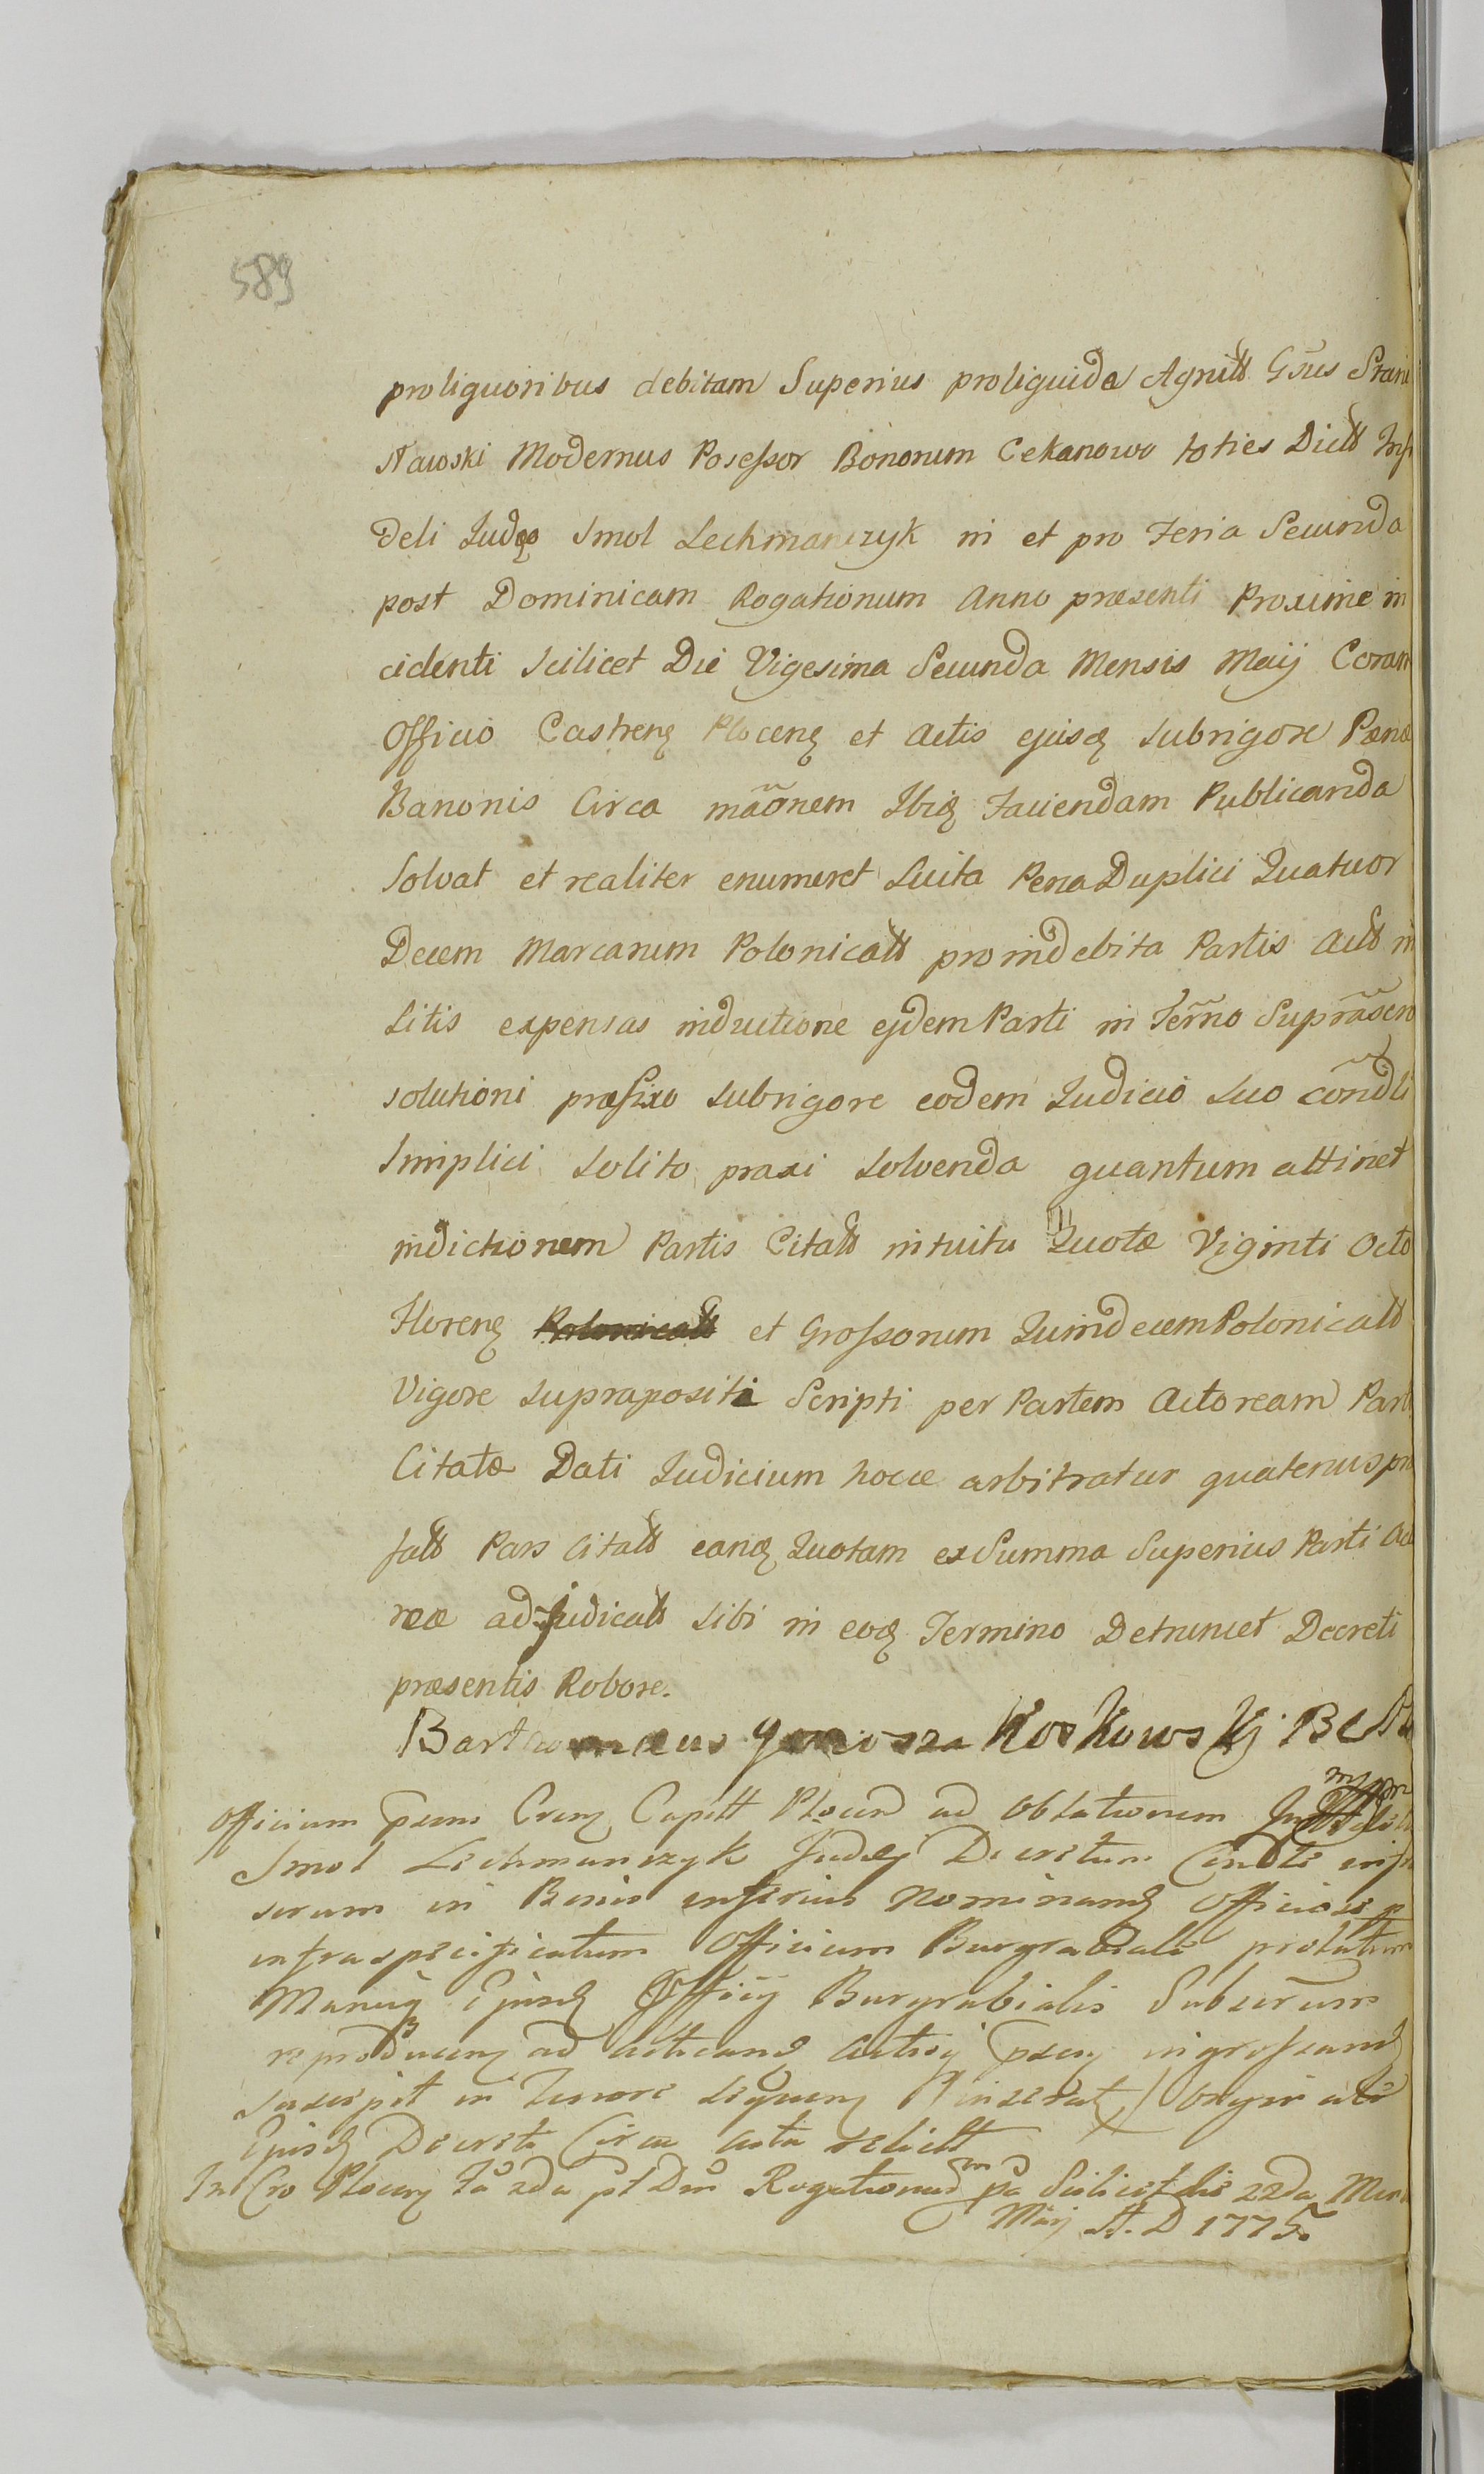 589
pro liquoribus debitam Superius pro liquida Agnitt Gsus Stani
sławski Modernus Posessor Bonorum Cekanowo toties Dictt Infi
Deli Judęo Smol Lechmanczyk in et pro Feria Secunda
post Dominicam Rogationum Anno præsenti Proxime in
cidenti Scilicet Die Vigesima Secunda Mensis Maij Coram
Officio Castrenę Plocenę et Actis ejusę Subrigore Pœnæ
Banonis Circa mãonem Ibię Faciendam Publicanda
Solvat et realiter enumeret Luita Pena Duplici Quatuor
Decem Marcarum Polonicatt pro indebita Partis Actt in
Litis expensas inductione ejdem Parti in Ter̃no Suprãscrip
solutioni præfixo Subrigore eodem Judicio Suo cõndli
Simplici Solito praxi Solvenda quantum attinet
indictionem Partis Citatt intuitu Quotæ Viginti Octo
Florenę Polonicatt et Grossorum Quindecem Polonicatt
Vigore suprapositi Scripti per Partem Actoream Parti
Citatæ Dati Judicium hocce arbitratur quatenus præ
fatt Pars Citatt eanę Quotam ex Summa Superius Parti Acto
reæ adjudicatt Sibi in eoę Termino Detruncet Decreti
præsentis Robore.
Bartholomeus Junosza Koskowskj
Officium psens Crenę Capitt Plocen ad Oblationem
Smol Lechmanczyk Judęj Decretum Cõndli infra
scrum in Bonis inferius Nominandę Officiose p
infraspecificatum Officium Burgrabiale prolatum
Manuę Ejusdę Officij Burgrabialis Subscrum
reproducenę ad acticandę Actisę psenę ingrossandę
suscepit in Tenore sequenę
Ejusdę Decreti Circa acta relictt
In Cro Plocenę Fa 2da pt Dm Rogationum pa Scilicet die 22da Mens
Maij A. D 1775.